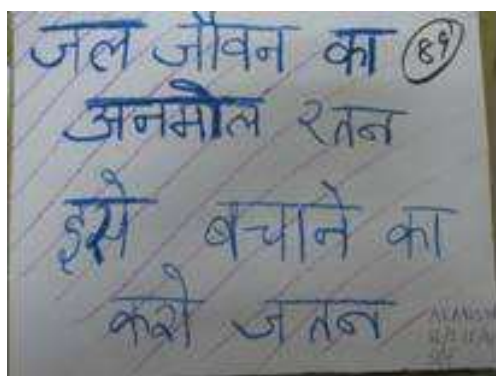 जल जीवन का 89
अनमोल रतन
इसे बचाने का
करो जतन